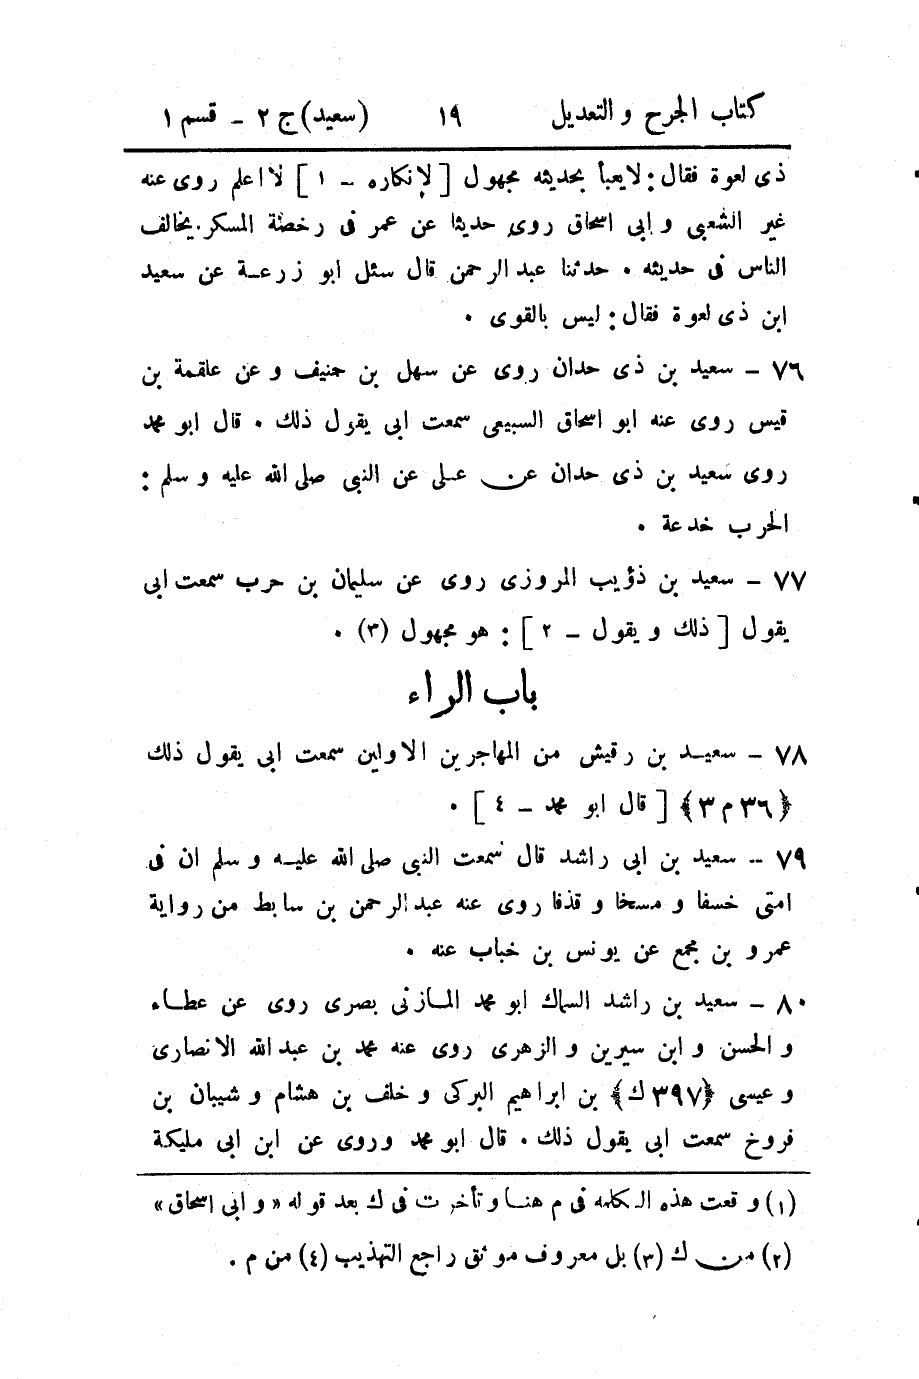 كتاب الجرح والتعديل ١٩ (سعيد) ج ٢ - قسم ١
ذى لعوة فقال: لا يعبأ بحديثه مجهول [ لإنكاره - ١ ] لا اعلم روى عنه
غير الشعبى و ابى اسحاق روى حديثا عن عمر فى رخصة المسكر يخالف
الناس فى حديثه ٠ حدثنا عبد الرحمن قال سئل ابو زرعة عن سعيد
ابن ذى لعوة فقال: ليس بالقوى ٠
٧٦ - سعيد بن ذى حدان روى عن سهل بن حنيف و عن علقمة بن
قيس روى عنه ابو اسحاق السبيعى سمعت ابى يقول ذلك ٠ قال ابو محمد
روى سعيد بن ذى حدان عن على عن النبى صلى الله عليه و سلم :
الحرب خدعة ٠
٧٧ - سعيد بن ذؤيب المروزى روى عن سليمان بن حرب سمعت ابى
يقول [ ذلك و يقول - ٢ ] : هو مجهول (٣) ٠
باب الراء
٧٨ - سعيد بن رقيش من المهاجرين الاولين سمعت ابى يقول ذلك
﴿٣٦ م ٣﴾ [ قال ابو محمد - ٤ ] ٠
٧٩ - سعيد بن ابى راشد قال سمعت النبى صلى الله عليه و سلم ان فى
امتى خسفا و مسخا و قذفا روى عنه عبد الرحمن بن سابط من رواية
عمرو بن مجمع عن يونس بن خباب عنه ٠
٨٠ - سعيد بن راشد السماك ابو محمد المازنى بصرى روى عن عطاء
و الحسن و ابن سيرين و الزهرى روى عنه محمد بن عبد الله الانصارى
و عيسى ﴿٣٩٧ ك﴾ بن ابراهيم البركى و خلف بن هشام و شيبان بن
فروخ سمعت ابى يقول ذلك ٠ قال ابو محمد وروى عن ابن ابى مليكة
(١) وقعت هذه الكلمة فى م هنا و تأخرت فى ك بعد قوله « و ابى اسحاق »
(٢) من ك (٣) بل معروف موثق راجع التهذيب (٤) من م .